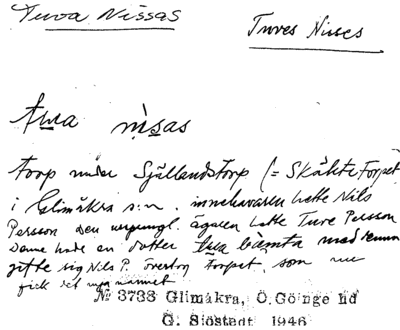 Tuva Nissas
Tuves Nisses
tuva nisas
torp under Själlandstorp (= Skäktetorpet
i Glimåkra s:n. innehavaren hette Nils
Persson den urspungl. ägaren hette Tuve Persson
Denne hade en dotter med henne
gifte sig Nils P. övertog torpet, som nu
fick det nya namnet
№ 3733 Glimåkra, Ö. Göinge hd
G. Sjöstedt 1946